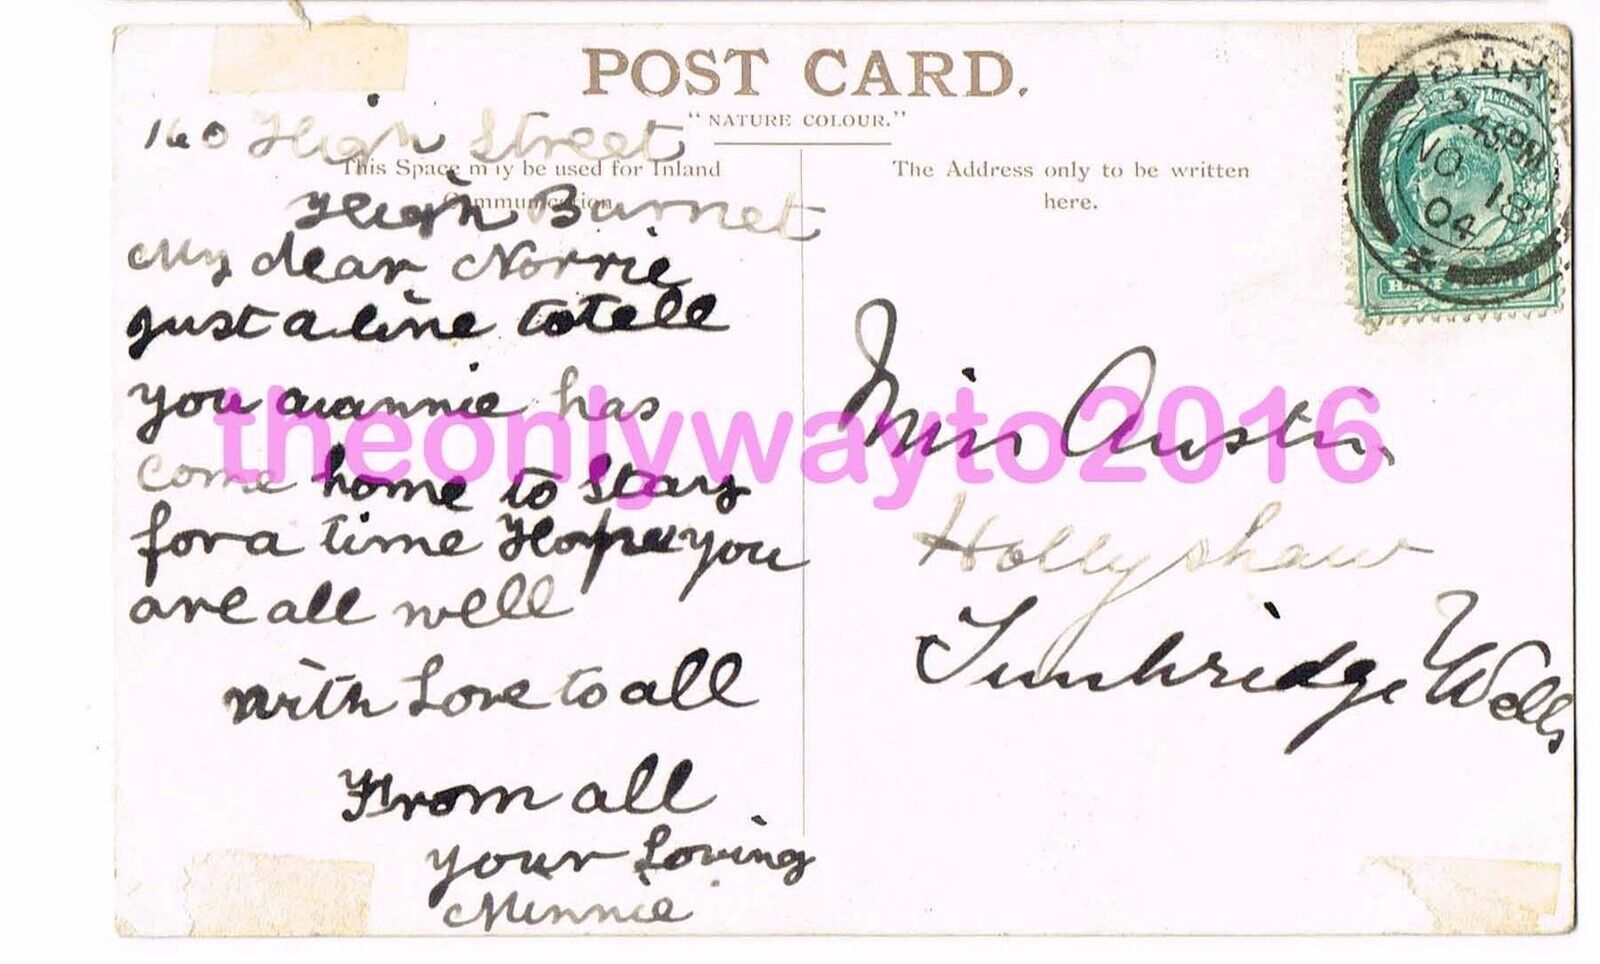 POST CARD.
"NATURE COLOUR."
This Space may be used for Inland
Communication.
The Address only to be written
here.
160 High Street
High Barnet
My dear Norrie
just a line to tell
you Annie has
come home to stay
for a time Hope you
are all well
with Love to all
From all
your Loving
Minnie
Miss Austin
Hollyshaw
Tunbridge Wells
2.45PM
NO 18
04
theonlywayto2016